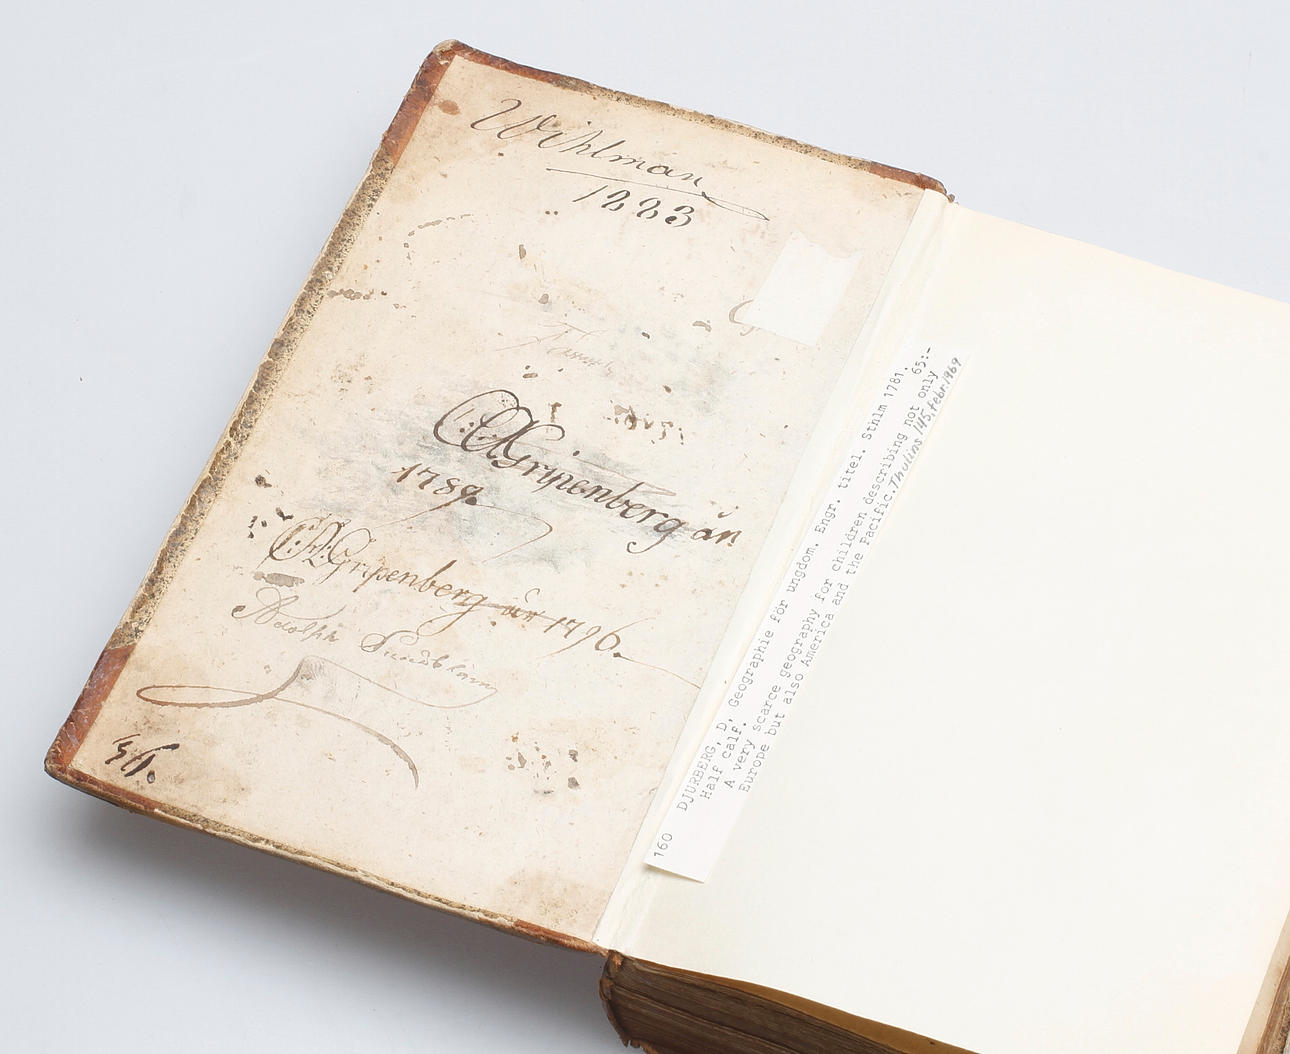 Wihlman
1883
C:A:Gripenberg än
1789.
C:A:Gripenberg än 1796.
Adolph
160 DJURBERG, D, Geographie för ungdom. Engr. titel. Sthlm 1781.
Half calf. 65:-
A very scarce geography for children describing not only
Europe but also America and the Pacific. Thulins 145, febr. 1969